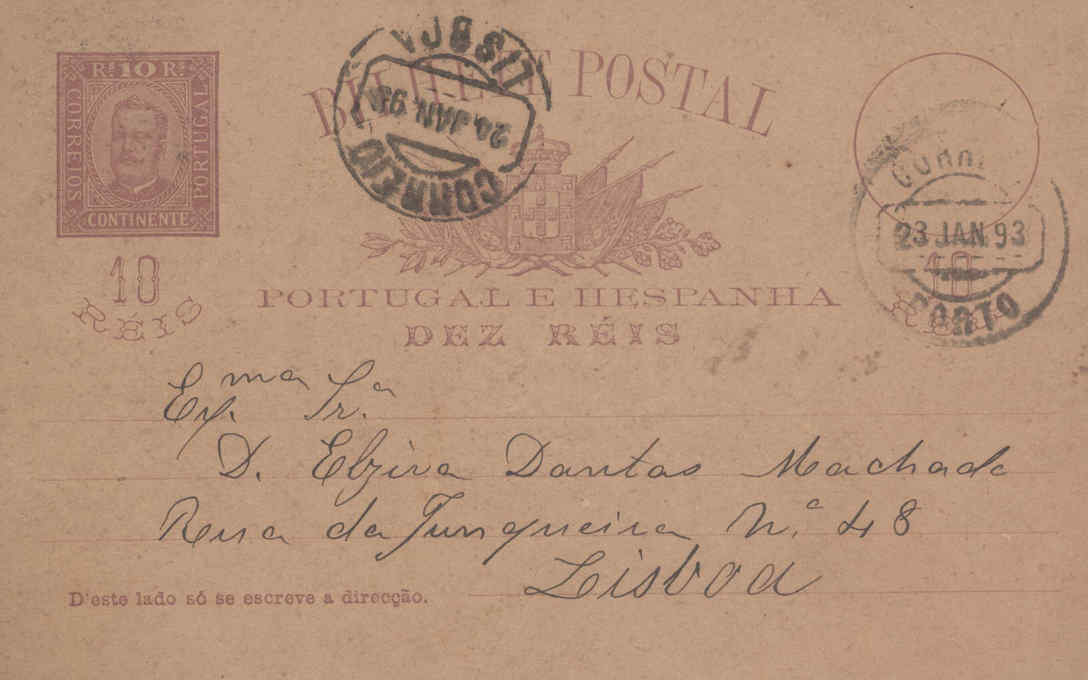 Rs. 10 Rs.
CORREIOS
PORTUGAL
CONTINENTE
10
RÉIS
BILHETE POSTAL
LISBOA
24 JAN. 93
CORREIO
CORREIO
23 JAN. 93
PORTO
10
RÉIS
PORTUGAL E HESPANHA
DEZ RÉIS
Ex.ma Sr.a
D. Elzira Dantas Machado
Rua da Junqueira N.º 48
Lisboa
D'este lado só se escreve a direcção.